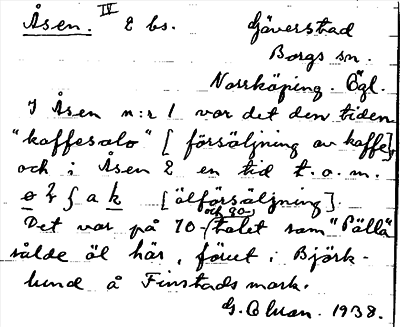 Åsen. IV 2 bs. Gäverstad
Borgs sn.
Norrköping. Ögl.
I Åsen n:r 1 var det den tiden
"kaffesalo" [försäljning av kaffe],
och i Åsen 2 en tid t.o.m.
[ölförsäljning].
Det var på 70- (och 80-) talet som "Pälla"
sålde öl här, förut i Björk-
lund å Finstads mark.
1938.